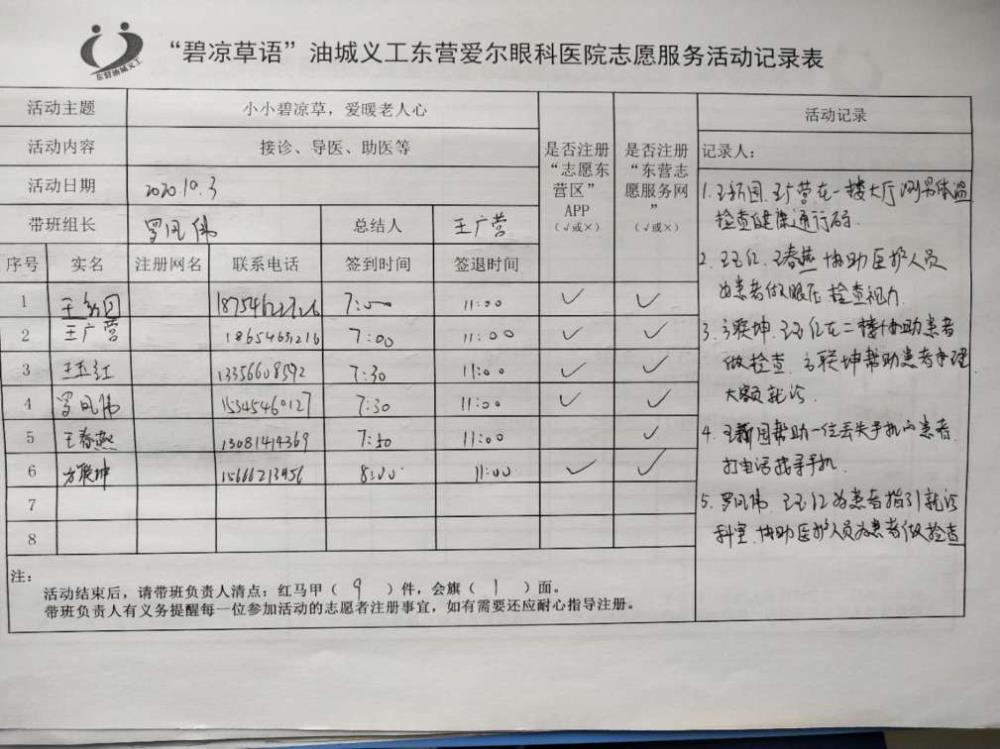 东营油城义工
“碧凉草语”油城义工东营爱尔眼科医院志愿服务活动记录表
活动主题 小小碧凉草，爱暖老人心
活动内容 接诊、导医、助医等
活动日期 2020.10.3
带班组长 罗凤伟 总结人 王广营
是否注册“志愿东营区”APP（√或×）
是否注册“东营志愿服务网”（√或×）
序号 实名 注册网名 联系电话 签到时间 签退时间
1 王新国 7:00 11:00 ✓ ✓
2 王广营 18654631216 7:00 11:00 ✓ ✓
3 王玉红 13356608592 7:30 11:00 ✓ ✓
4 罗凤伟 15345460127 7:30 11:00 ✓ ✓
5 王春燕 13081414369 7:50 11:00 ✓
6 方联坤 15666213956 8:00 11:00 ✓ ✓
7
8
注：
活动结束后，请带班负责人清点：红马甲（ 9 ）件，会旗（ 1 ）面。
带班负责人有义务提醒每一位参加活动的志愿者注册事宜，如有需要还应耐心指导注册。
活动记录
记录人：
1.王新国.王广营在一楼大厅测量体温
检查健康通行码.
2.王玉红.王春燕协助医护人员
为患者做眼压检查视力.
3.方联坤.王玉红在二楼协助患者
做检查.方联坤帮助患者办理
大额就诊.
4.王新国帮助一位丢失手机的患者
打电话找寻手机.
5.罗凤伟.王玉红为患者指引就诊
科室.协助医护人员为患者做检查